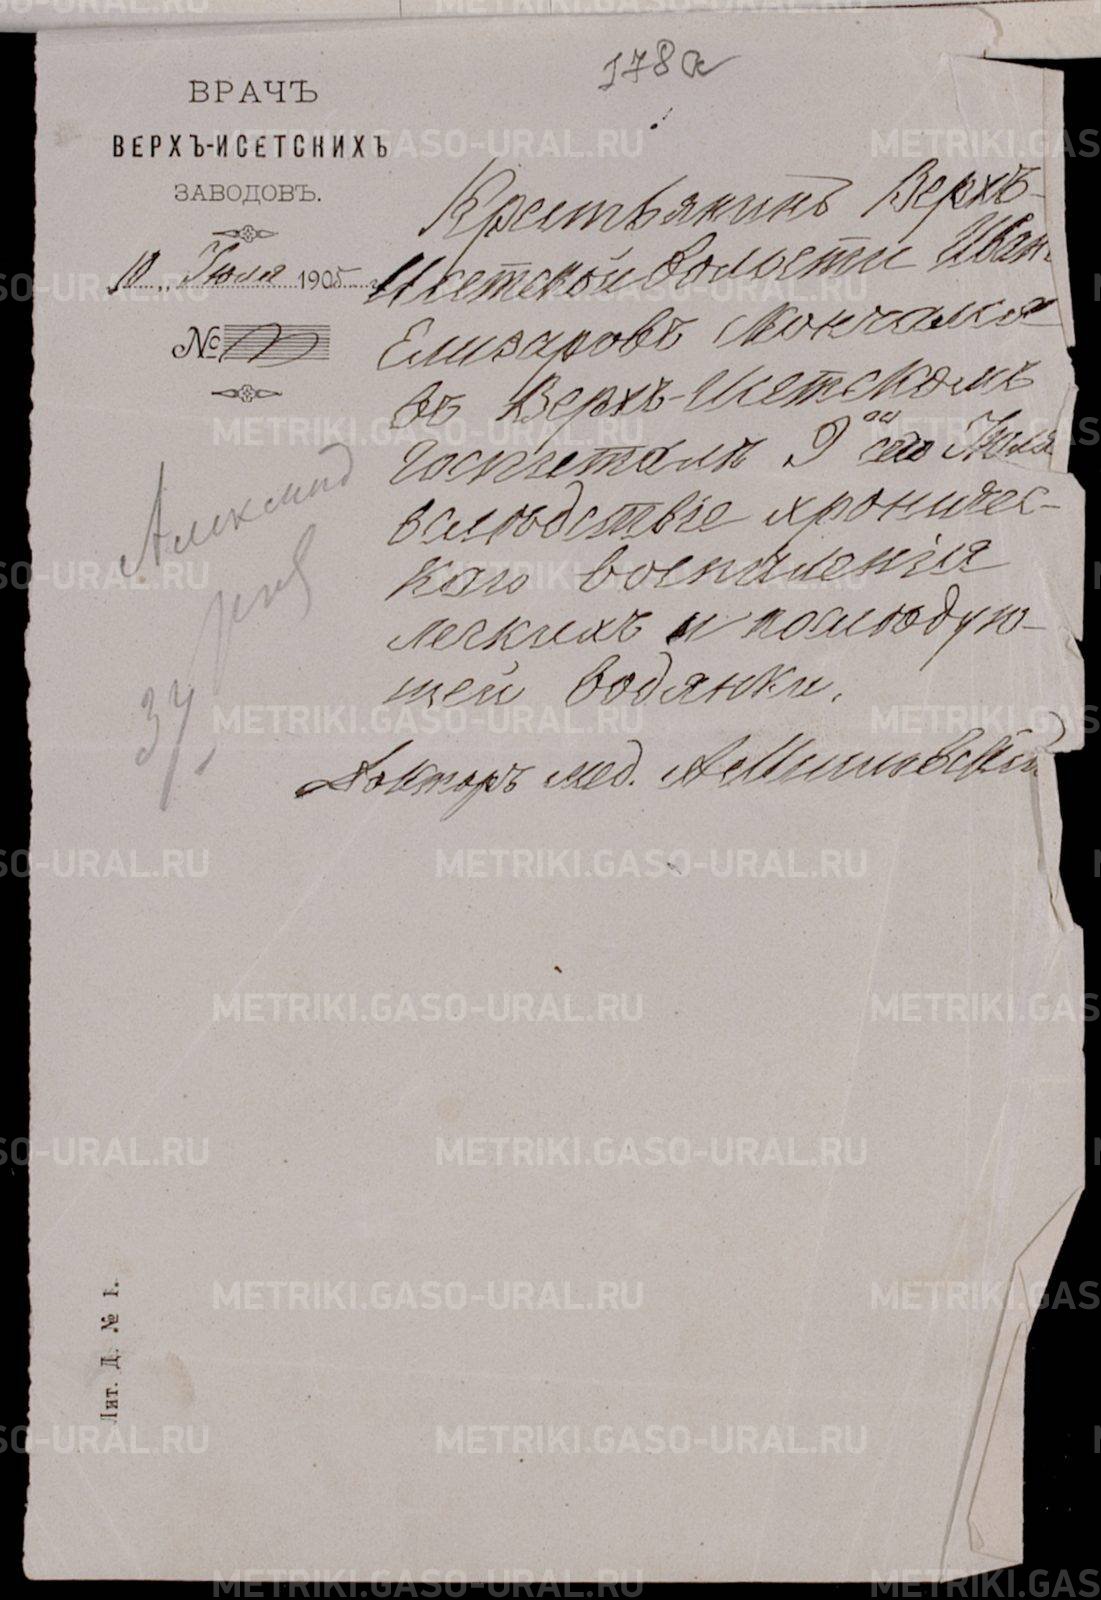 178а
ВРАЧЪ
ВЕРХЪ-ИСЕТСКИХЪ
ЗАВОДОВЪ.
10 „ Іюля 1905 г.
№
Крестьянинъ Верхъ-
Исетской волости Иван
Елизаровъ скончался
въ Верхъ-Исетскомъ
госпитале 9 ого сего Июля
вследствіе хроничес-
каго воспаленія
легкихъ и последую-
щей водянки.
Докторъ мед. А Миславскій
34
Лит. Д. № 1.
METRIKI.GASO-URAL.RU